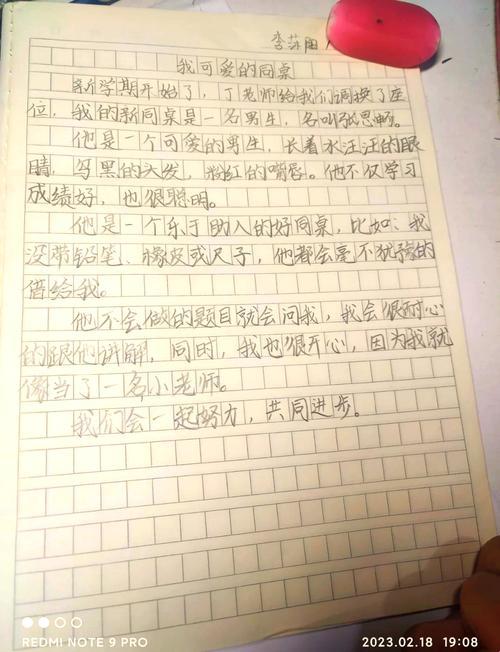 李莎阳
我可爱的同桌
新学期开始了，丁老师给我们调换了座
位，我的新同桌是一名男生，名叫张思畅。
他是一个可爱的男生，长着水汪汪的眼
睛，乌黑的头发，粉红的嘴唇。他不仅学习
成绩好，也很聪明。
他是一个乐于助人的好同桌，比如：我
没带铅笔、橡皮或尺子，他都会毫不犹豫的
借给我。
他不会做的题目就会问我，我会很耐心
的跟他讲解，同时，我也很开心，因为我就
像当了一名小老师。
我们会一起努力，共同进步。
REDMI NOTE 9 PRO
2023.02.18 19:08